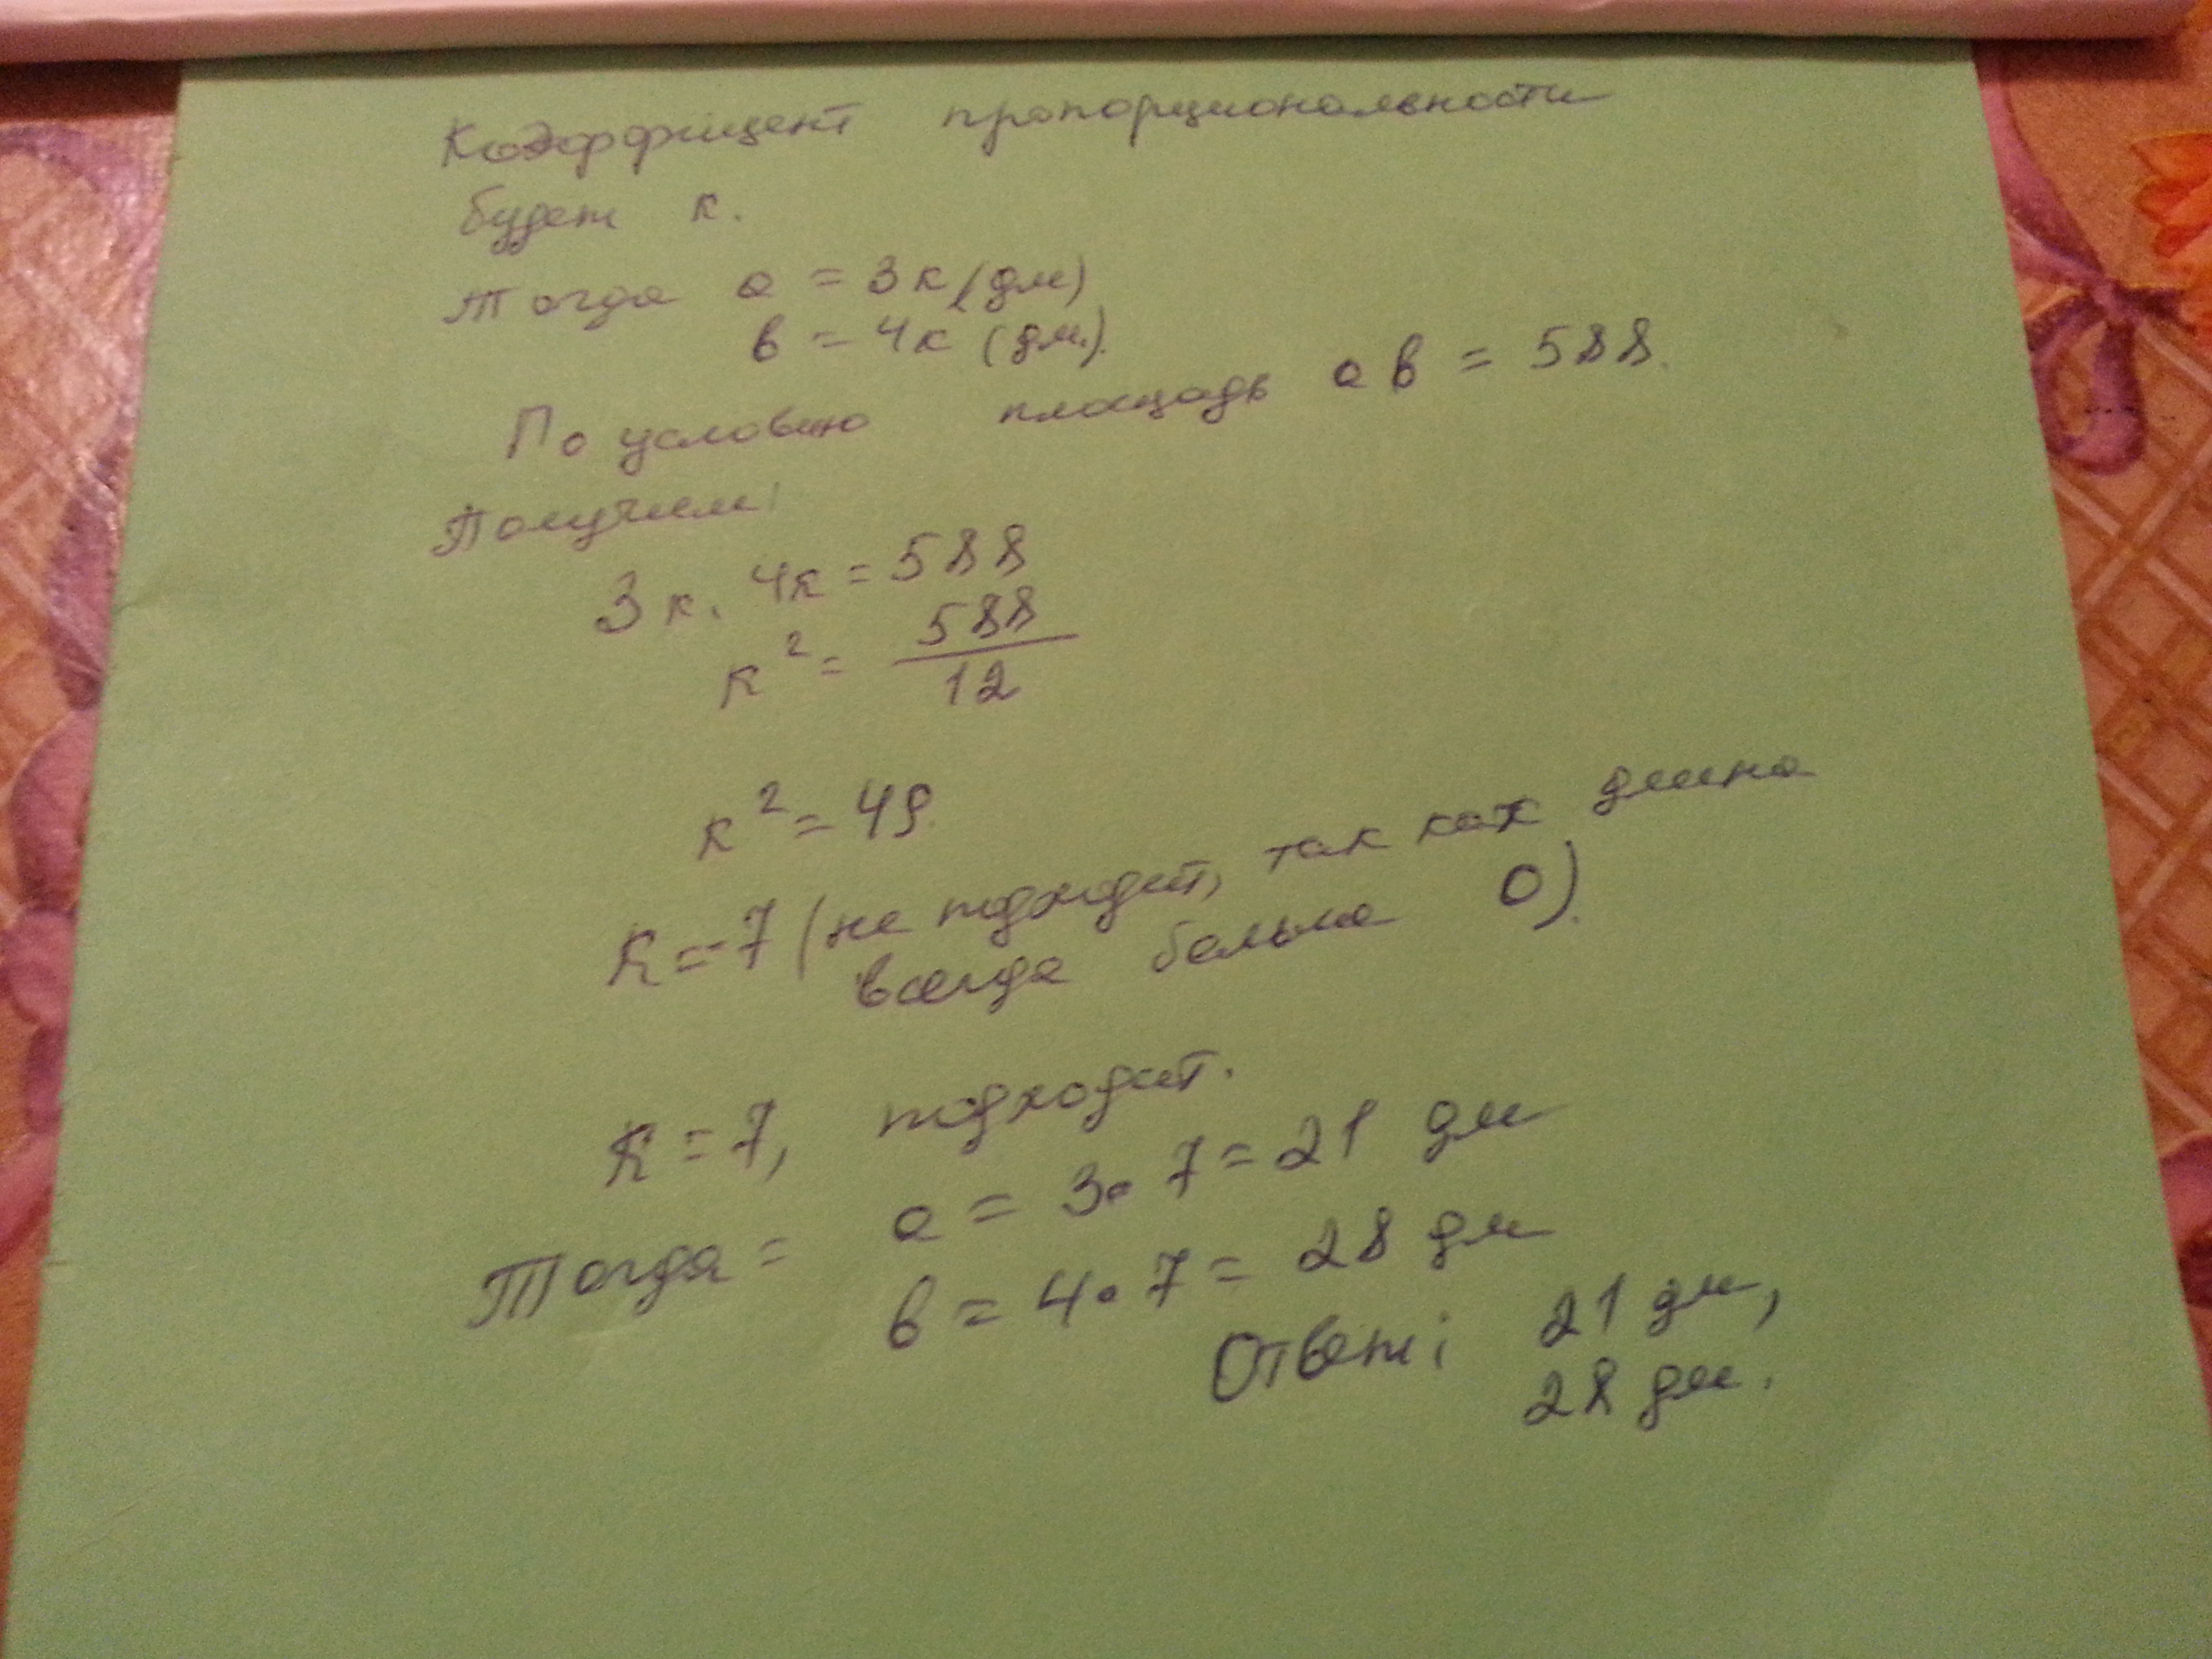 Коэффициент пропорциональности
будет к.
Тогда а = 3к (дм)
в = 4к (дм).
По условию площадь ав = 588.
Получим:
3к. 4к = 588
к² = 588/12
к² = 49.
К = -7 (не подходит, так как длина
всегда больше 0).
К = 7, подходит.
Тогда = а = 3 • 7 = 21 дм
в = 4 • 7 = 28 дм
Ответ: 21 дм,
28 дм.